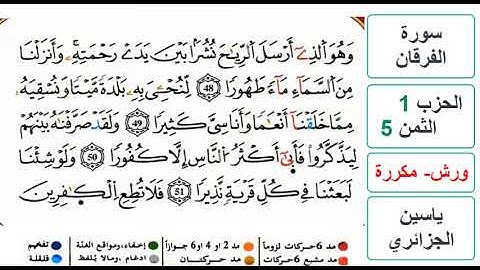 وَهُوَ ٱلذِےٓ أَرْسَلَ ٱلرِّيَٰحَ نُشُراَۢ بَيْنَ يَدَےْ رَحْمَتِهِۦۖ وَأَنزَلْنَا
مِنَ ٱلسَّمَآءِ مَآءٗ طَهُوراٗ 48 لِّنُحْـِۧيَ بِهِۦ بَلْدَةٗ مَّيْتاٗ وَنُسْقِيَهُۥ
مِمَّا خَلَقْنَآ أَنْعَٰماٗ وَأَنَاسِيَّ كَثِيراٗ 49 وَلَقَدْ صَرَّفْنَٰهُ بَيْنَهُمْ
لِيَذَّكَّرُواْ فَأَبَىٰٓ أَكْثَرُ ٱلنَّاسِ إِلَّا كُفُوراٗ 50 وَلَوْ شِئْنَا
لَبَعَثْنَا فِے كُلِّ قَرْيَةٖ نَّذِيراٗ 51 فَلَا تُطِعِ ٱلْكَٰفِرِينَ
سورة
الفرقان
الحزب 1
الثمن 5
ورش- مكررة
ياسين
الجزائري
مد 6 حركات لزوماً
مد 2 او 4 او 6 جوازاً
إخفاء، ومواقع الغنة
تفخيم
مد مشبع 6 حركات
مد حركتان
ادغام، ومالا يُلفظ
قلقلة